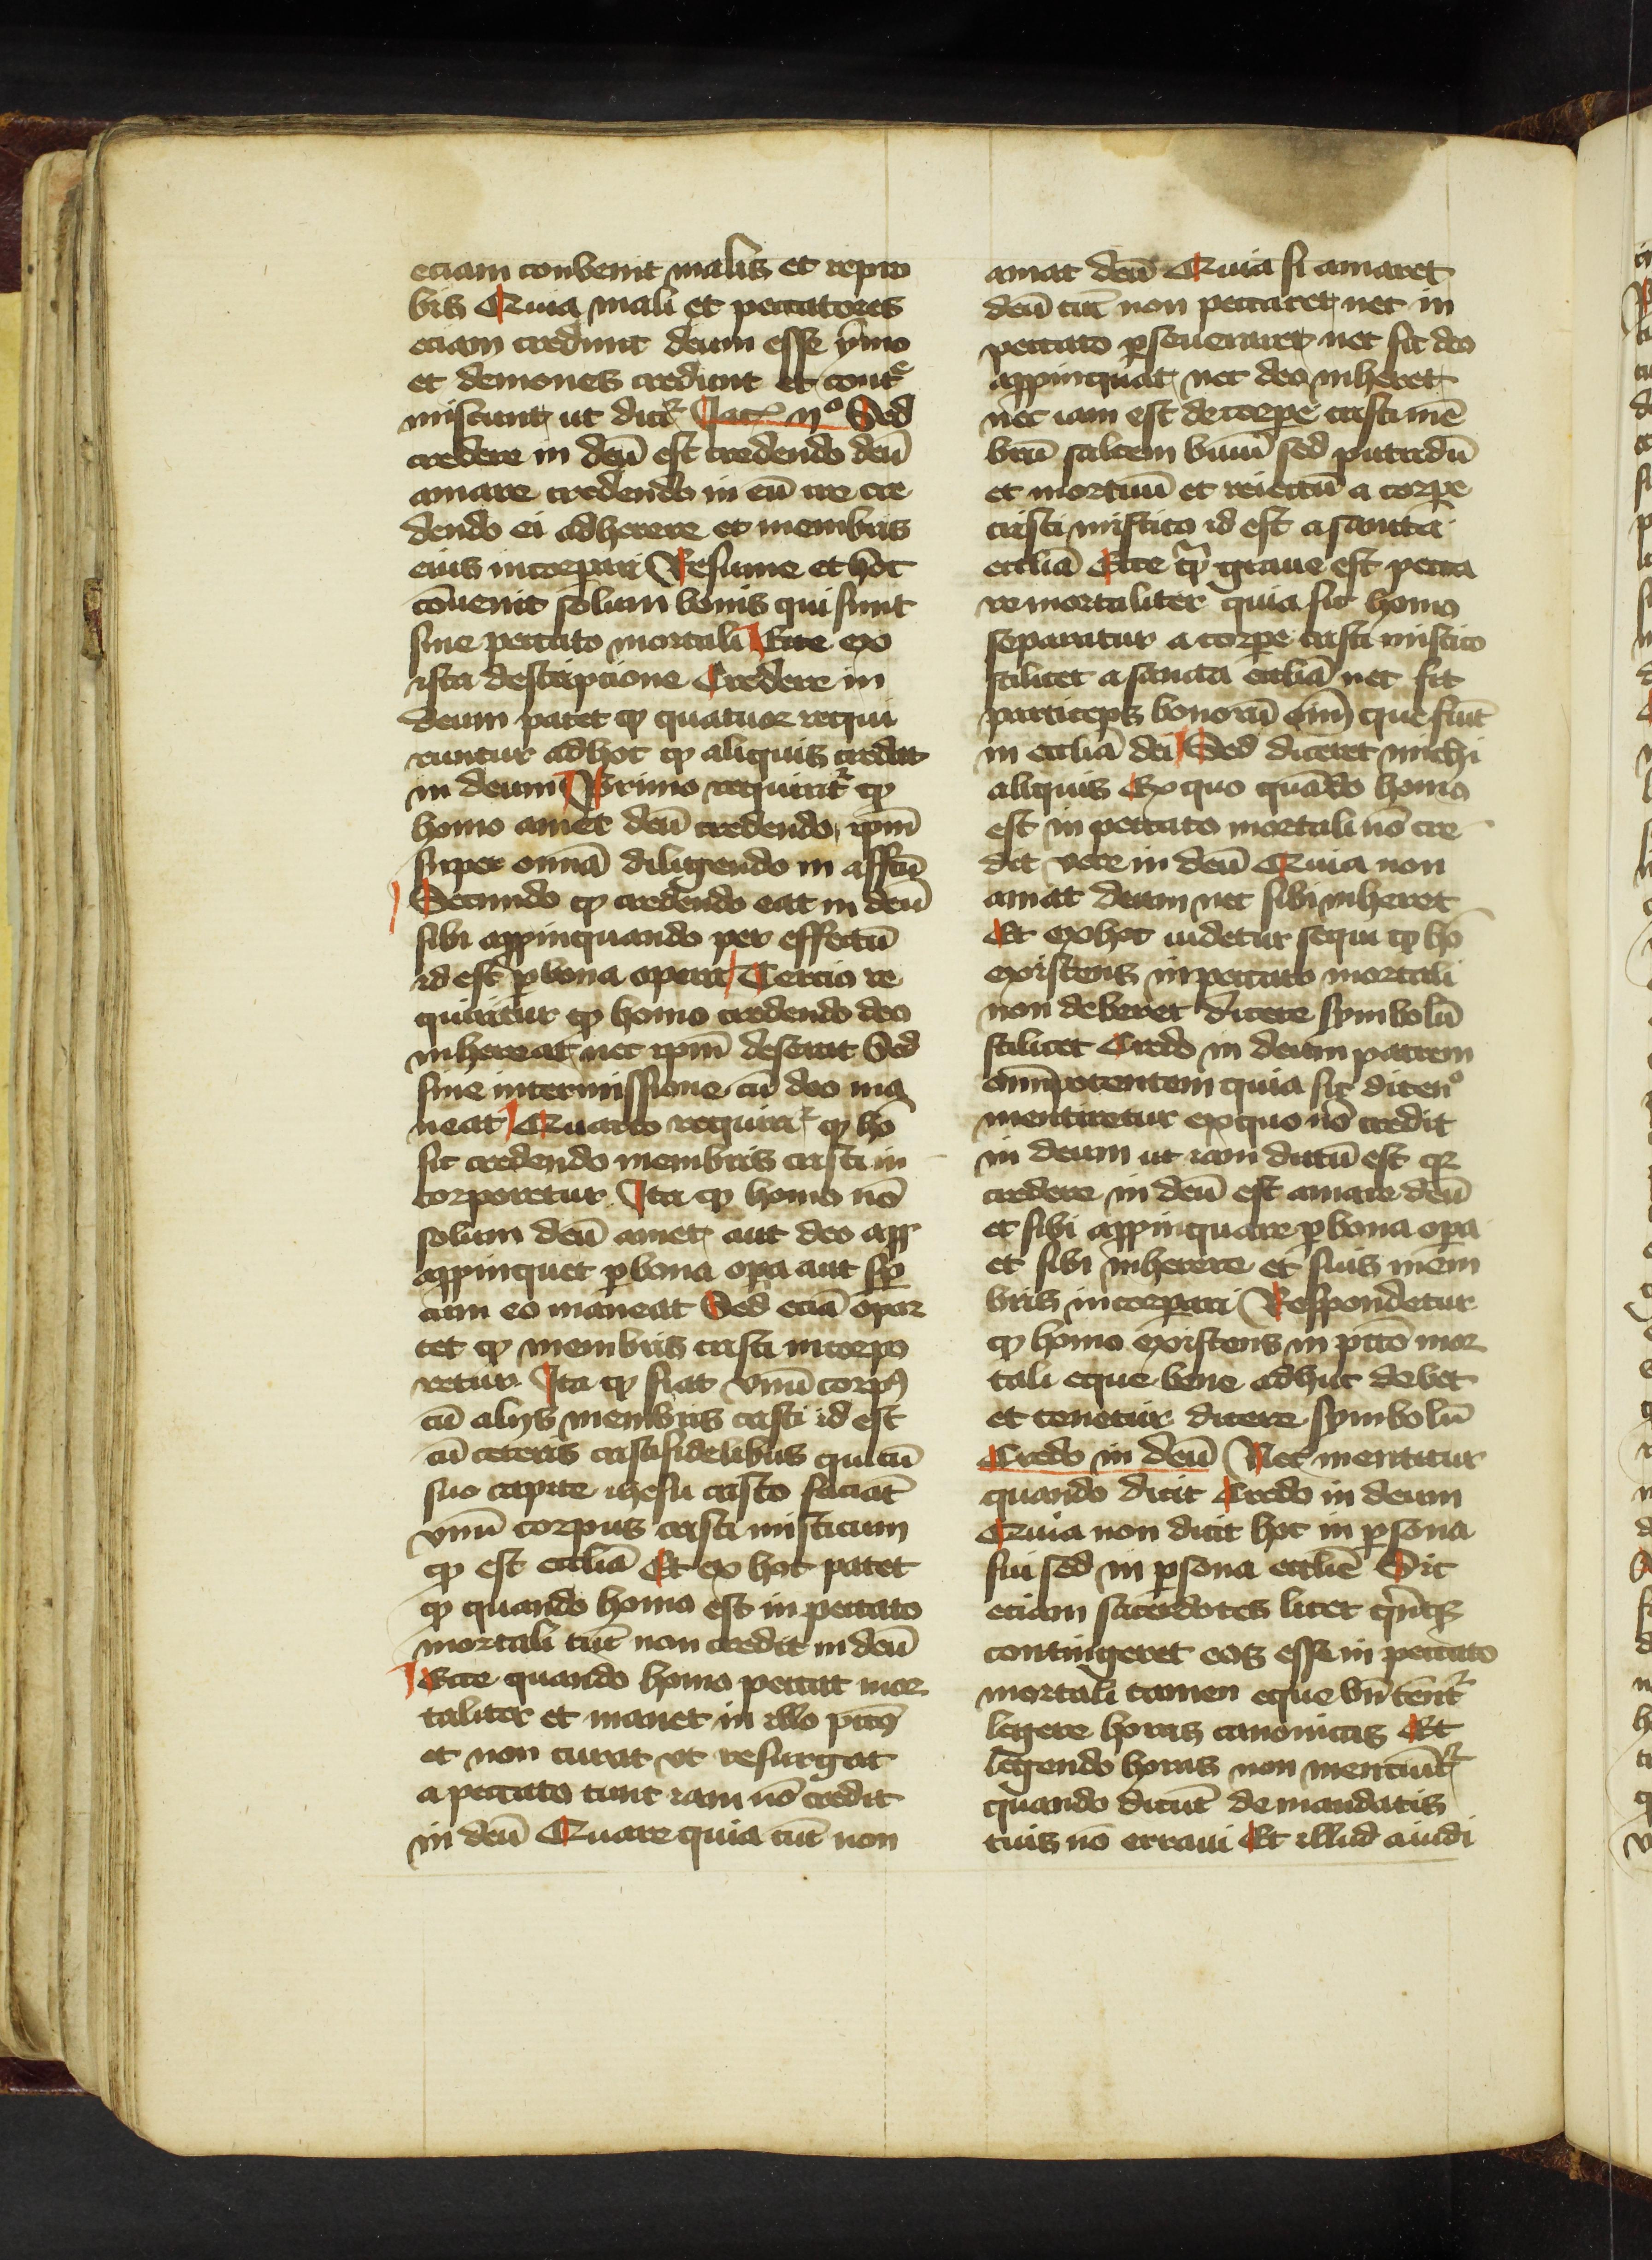 eciam convenit malis et repro
bis Quia mali et peccatores
eciam credunt deum esse ymo
et demones credunt et cont̄e
miscunt ut dicit᷑ Jac̄ 2º Sed
credere in deū est credendo deū
amare credendo in eū ire cre
dendo ei adherere et membris
eius incorpari Resume et hoc
cōuenit solum bonis qui sunt
sine peccato mortali Ecce ex
ista descripcione Credere in
deum patet ꝙ quatuor requi
runtur ad hoc ꝙ aliquis credat
in deum Primo requirit᷑ ꝙ
homo amet deū credendo ipm̄
super omnā diligendo in affctū
Secundo ꝙ credendo eat in deū
sibi appinquando per effectū
id est ꝑ bona opera Tercio re
quiritur ꝙ homo credendo deo
inhereat nec ipm̄ deserat Sed
sine intermissione cū deo ma
neat Quarto requirit᷑ ꝙ hō
sit credendo membris cristi in
corporetur Ita ꝙ homo nō
solum deū amet aut deo app
appinquet ꝑ bona opa aut sp̄
cum eo maneat Sed eciā opor
tet ꝙ membris cristi incorpo
retur Ita ꝙ fiat vnū corpꝰ
cū alijs membris cristi id est
cū ceteris cristifidelibus qui cū
suo capite ihesu cristo faciāt
vnū corpus cristi misticum
ꝙ est eccliā Et ex hoc patet
ꝙ quando homo est in peccato
mortali tūc non credit in deū
Ecce quando homo peccat mor
taliter et manet in illo pctō
et non curat vt resurgat
a peccato tunc iam nō credit
in deū Quare quia tūc non
amat deū Quia si amaret
deū tūc non peccaret nec in
peccato ꝑseueraret nec sic deo
appinquat nec deo inheret
nec iam est de corpe cristi mē
brū saltem viuū sed putridū
et mortuū et reiectū a corpe
cristi mistico id est a sancta
eccliā Ecce qm̄ graue est pecca
re mortaliter quia sic homo
separatur a corpe cristi mistico
scilicet a sancta eccliā nec fit
particeps bonorū oīm que fiūt
in eccliā dei Sed diceret michi
aliquis Ex quo quādo homo
est in peccato mortali nō cre
dit vere in deū Quia non
amat deum nec sibi inheret
Et ex hoc uidetur sequi ꝙ hō
existens in peccato mortali
non deberet dicere symbolū
scilicet Credo in deum patrem
omnīpotentem quia sic dicenº
mentiretur ex quo nō credit
in deum ut iam dictū est qr
credere in deū est amare deū
et sibi appinquare ꝑ bona opa
et sibi inherere et suis mēm
bris incorpari Respondetur
ꝙ homo existens in pctō mor
tali eque bene adhuc debet
et tenetur dicere symbolū
Credo in deū Nec mentitur
quando dicit Credo in deum
Quia non dicit hoc in ꝑsona
sui sed in ꝑsona ecclie Sic
eciam sacerdotes licet
contingeret eos esse in peccato
mortali tamen eque bn̄ tēnt᷑
legere horas canonicas Et
legendo horas non menciūt᷑
quando dicūt de mandatis
tuis nō erraui Et illud aiudi